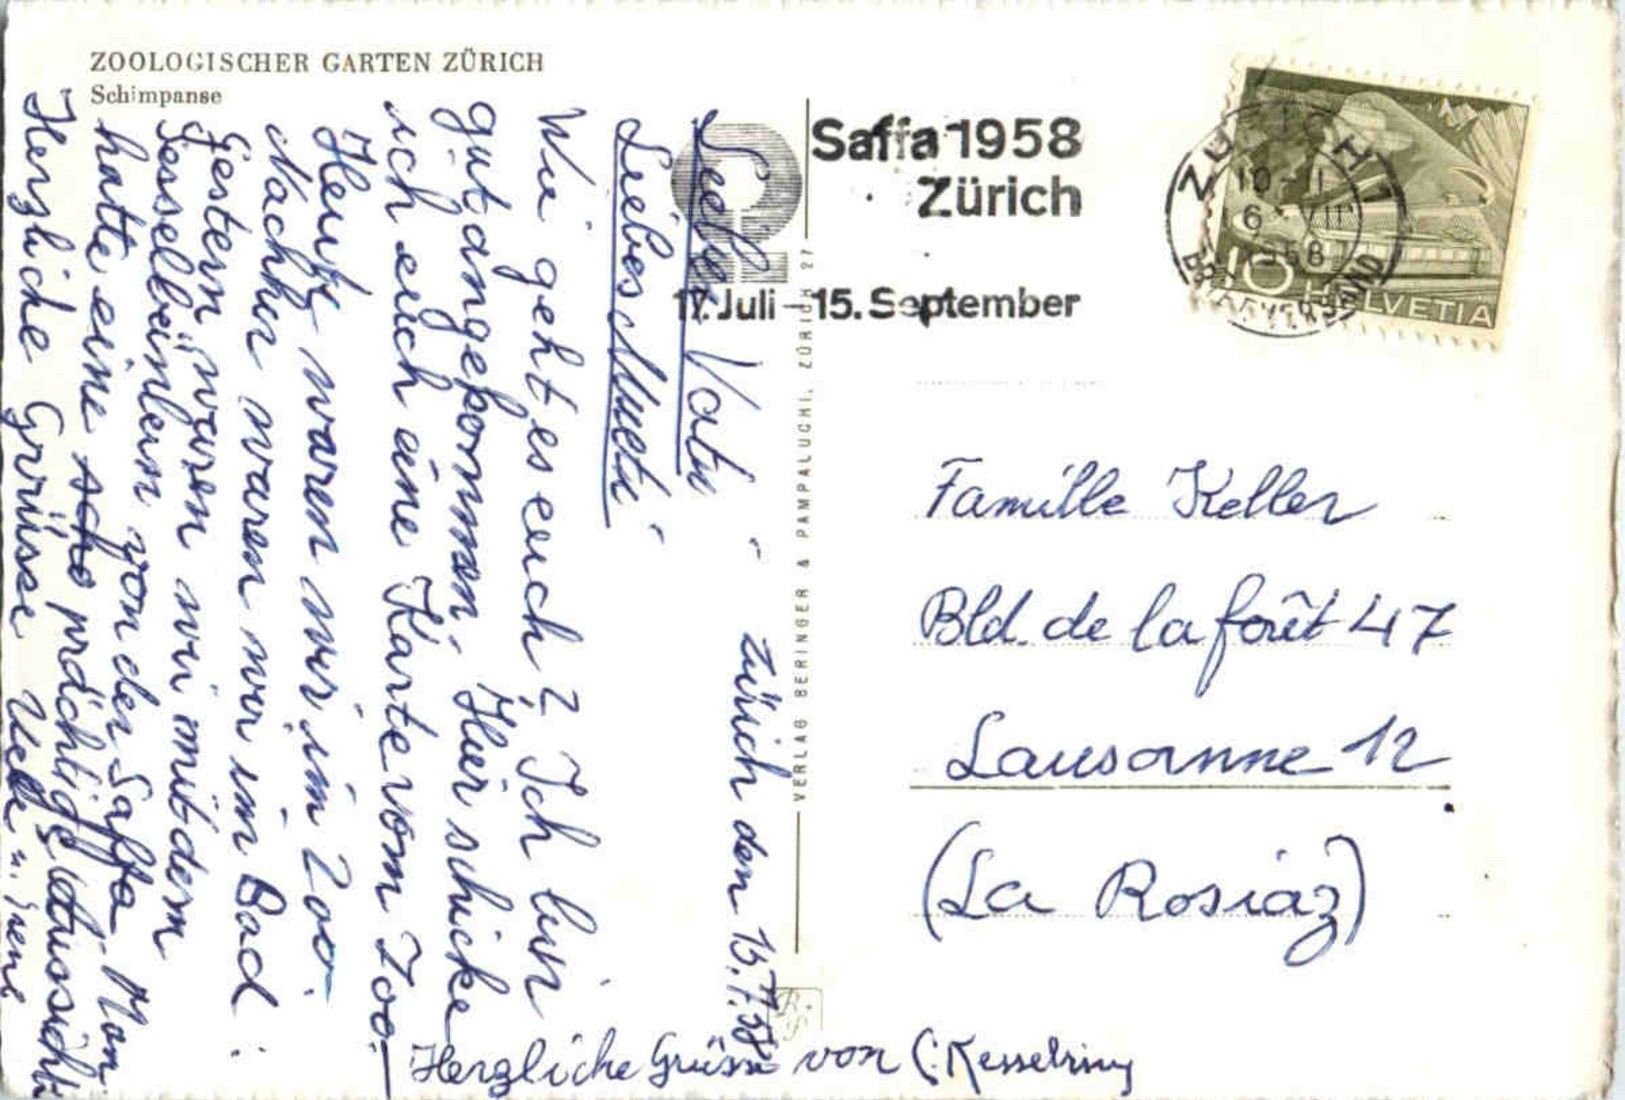 ZOOLOGISCHER GARTEN ZÜRICH
Schimpanse
Saffa 1958
Zürich
17. Juli – 15. September
ZÜRICH 1
1958
BRIEFVERSAND
10 HELVETIA
VERLAG BERINGER & PAMPALUCHI, ZÜRICH 27
Zürich den 15.7.58
Lieber Vati
Liebes Mueti
Wie geht es euch? Ich bin
gut angekommen. Hier schicke
ich euch eine Karte vom Zoo.
Heute waren wir im Zoo.
Nachher waren wir im Bad.
Gestern waren wir mit dem
Sesselbähnlein von der Saffa. Man
hatte eine prächtige Aussicht.
Herzliche Grüsse
Herzliche Grüsse von C. Kesselring
Famille Keller
Bld. de la forêt 47
Lausanne 12
(La Rosiaz)